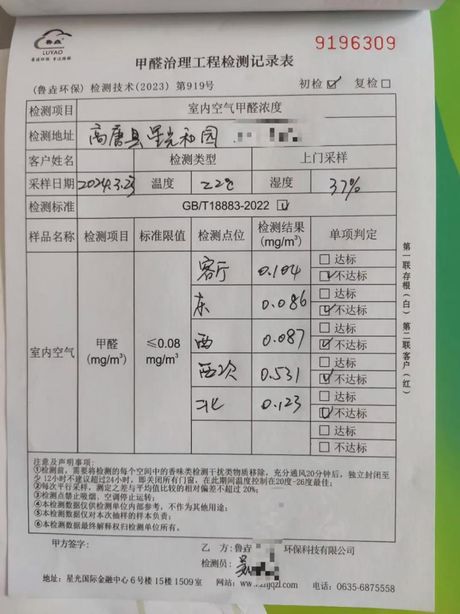 鲁垚
LUYAO
9196309
甲醛治理工程检测记录表
(鲁垚环保) 检测技术(2023) 第919号 初检☑ 复检☐
检测项目 室内空气甲醛浓度
检测地址 高唐县星光和园
客户姓名 检测类型 上门采样
采样日期 2024.3.23 温度 22℃ 湿度 37%
检测标准 GB/T18883-2022 ☑
样品名称 检测项目 标准限值 检测点位 检测结果(mg/m³) 单项判定
室内空气 甲醛(mg/m³) ≤0.08 mg/m³
客厅 0.104 ☐达标 ☑不达标
东 0.086 ☐达标 ☑不达标
西 0.087 ☐达标 ☑不达标
西次 0.531 ☐达标 ☑不达标
北 0.123 ☐达标 ☑不达标
☐达标 ☐不达标
第一联存根(白) 第二联客户(红)
注意及声明事项:
①检测前,需要将检测的每个空间中的香味类检测干扰类物质移除,充分通风20分钟后,独立封闭至
少12小时不建议超过24小时,即关闭所有门窗,在此期间温度控制在20度-26度最佳;
②每次平行采样,测定之差与平均值比较的相对偏差不超过20%;
③检测点禁止吸烟、空调停止运转;
④本检测数据仅供检测单位内部参考,不作为其他用途;
⑤本检测数据仅对本次抽样的样本负责;
⑥本检测数据最终解释权归检测单位所有。
甲方签字: 乙 方:鲁垚 环保科技有限公司
检测员:
地址:星光国际金融中心6号楼15楼1509室 网站:www. jqzl.com 电话:0635-6875558